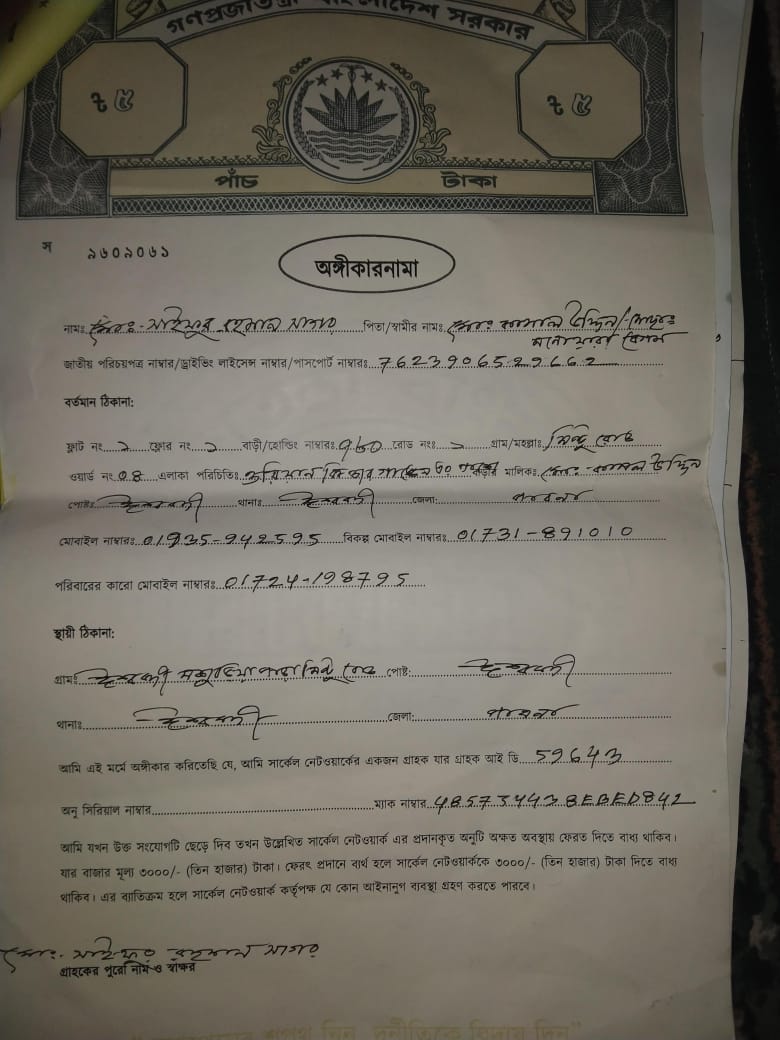 গণপ্রজাতন্ত্রী বাংলাদেশ সরকার
৳ ৫ ৳ ৫
পাঁচ টাকা
স ৯৬০৯০৬৯
অঙ্গীকারনামা
নামঃ মোঃ- সাইফুর রহমান সাগর পিতা/স্বামীর নামঃ মোঃ কামাল উদ্দিন/
মনোয়ারা বেগম
জাতীয় পরিচয়পত্র নাম্বার/ড্রাইভিং লাইসেন্স নাম্বার/পাসপোর্ট নাম্বারঃ 7623906529662
বর্তমান ঠিকানা:
ফ্লাট নং ১ ফ্লোর নং ১ বাড়ী/হোল্ডিং নাম্বারঃ ৭৬০ রোড নংঃ ১ গ্রাম/মহল্লাঃ রোড
ওয়ার্ড নং 08 এলাকা পরিচিতিঃ মালিকঃ মোঃ- কামাল উদ্দিন
পোষ্টঃ ঈশ্বরদী থানাঃ ঈশ্বরদী জেলা: পাবনা
মোবাইল নাম্বারঃ 01935-942595 বিকল্প মোবাইল নাম্বারঃ 01731-891010
পরিবারের কারো মোবাইল নাম্বারঃ 01724-198795
স্থায়ী ঠিকানা:
গ্রামঃ ঈশ্বরদী রোড পোষ্ট: ঈশ্বরদী
থানাঃ ঈশ্বরদী জেলা: পাবনা
আমি এই মর্মে অঙ্গীকার করিতেছি যে, আমি সার্কেল নেটওয়ার্কের একজন গ্রাহক যার গ্রাহক আই ডি 59643
অনু সিরিয়াল নাম্বার ম্যাক নাম্বার 48573443BEBED842
আমি যখন উক্ত সংযোগটি ছেড়ে দিব তখন উল্লেখিত সার্কেল নেটওয়ার্ক এর প্রদানকৃত অনুটি অক্ষত অবস্থায় ফেরত দিতে বাধ্য থাকিব।
যার বাজার মূল্য ৩০০০/- (তিন হাজার) টাকা। ফেরৎ প্রদানে ব্যর্থ হলে সার্কেল নেটওয়ার্ককে ৩০০০/- (তিন হাজার) টাকা দিতে বাধ্য
থাকিব। এর ব্যতিক্রম হলে সার্কেল নেটওয়ার্ক কর্তৃপক্ষ যে কোন আইনানুগ ব্যবস্থা গ্রহণ করতে পারবে।
মোঃ- সাইফুর রহমান সাগর
গ্রাহকের পুরো নাম ও স্বাক্ষর